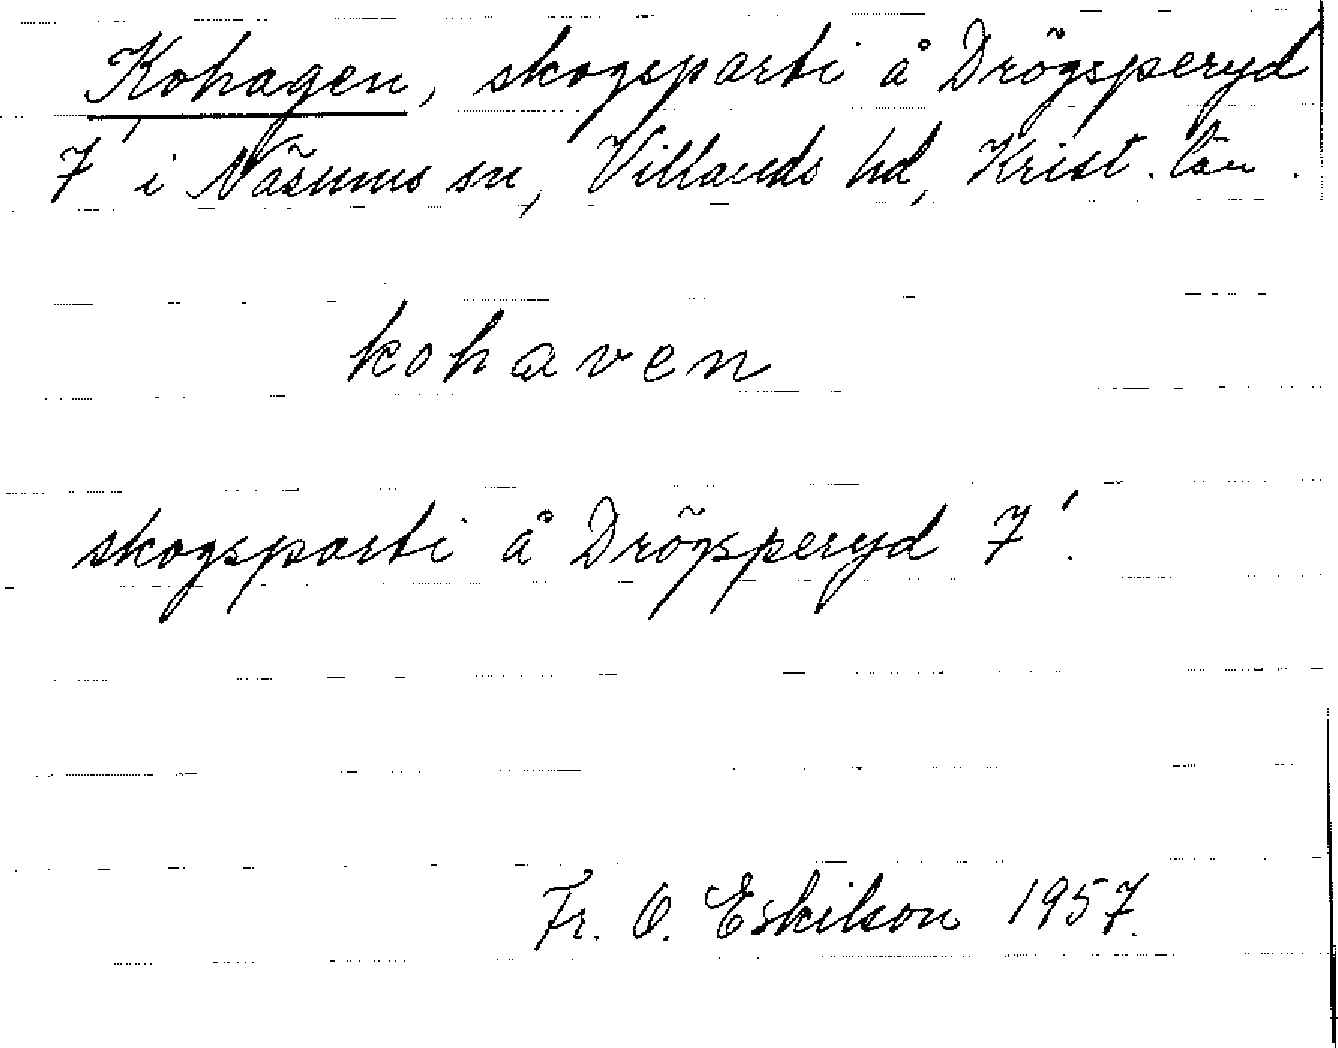 Kohagen, skogsparti å Drögsperyd
7' i Näsums sn, Villands hd, Krist. län.
kohaven
skogsparti å Drögsperyd 7'.
Fr. O. Eskilson 1957.